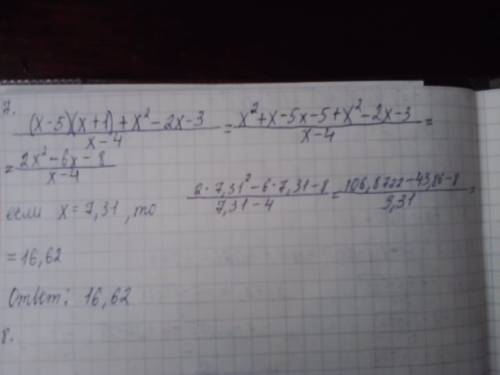 7.
(x-5)(x+1)+x²-2x-3 / x-4 = x²+x-5x-5+x²-2x-3 / x-4 =
= 2x²-6x-8 / x-4
если x=7,31, то 2·7,31²-6·7,31-8 / 7,31-4 = 106,8722-43,86-8 / 3,31 =
=16,62
Ответ: 16,62
8.